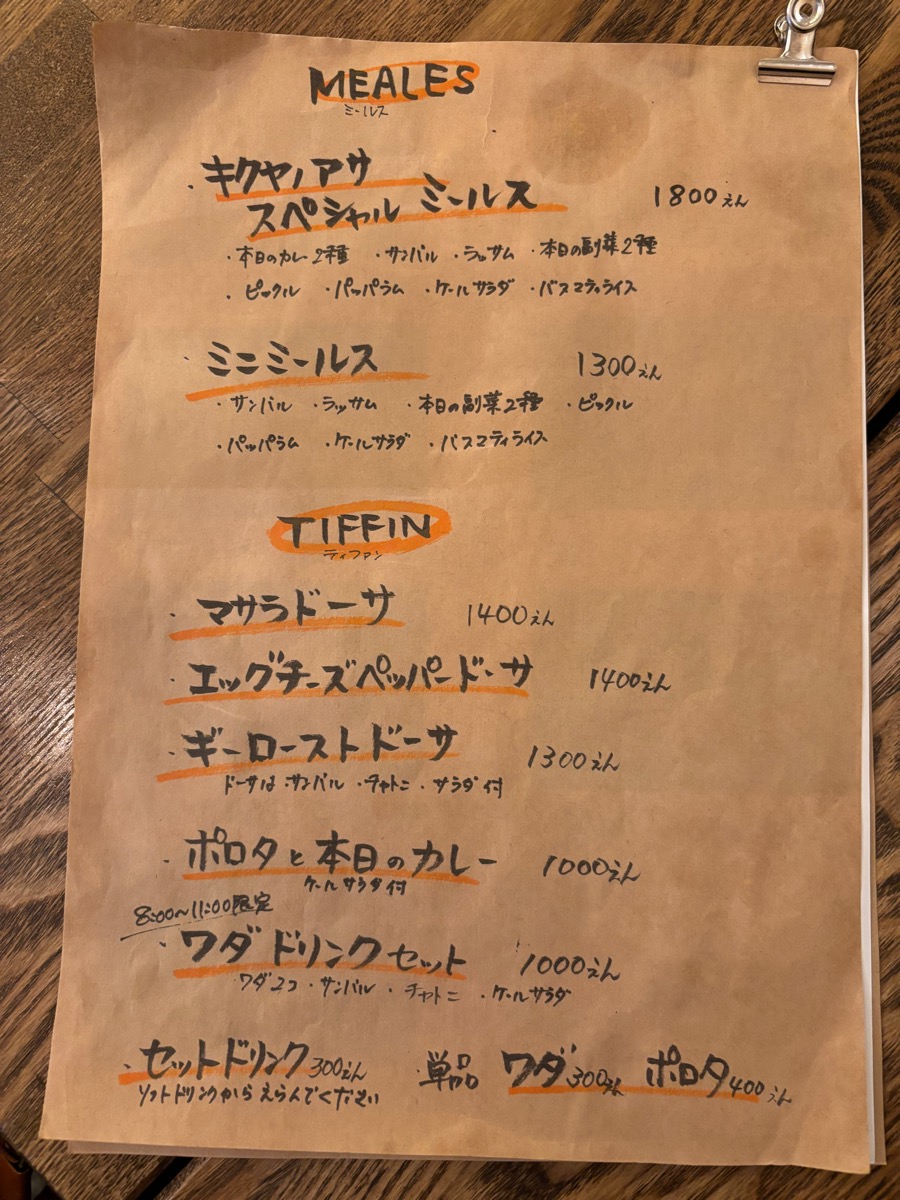 MEALES
ミールス
・キクヤノアサ
スペシャル ミールス 1800えん
・本日のカレー2種 ・サンバル ・ラッサム ・本日の副菜2種
・ピックル ・パッパラム ・ケールサラダ ・バスマティライス
・ミニミールス 1300えん
・サンバル ・ラッサム ・本日の副菜2種 ・ピックル
・パッパラム ・ケールサラダ ・バスマティライス
TIFFIN
ティファン
・マサラドーサ 1400えん
・エッグチーズペッパードーサ 1400えん
・ギーローストドーサ 1300えん
ドーサは ・サンバル ・チャトニ ・サラダ付
・ポロタと本日のカレー 1000えん
ケールサラダ付
8:00〜11:00限定
・ワダ ドリンクセット 1000えん
・ワダ2コ ・サンバル ・チャトニ ・ケールサラダ
・セットドリンク300えん ・単品 ワダ300えん ポロタ400えん
ソフトドリンクから えらんでください